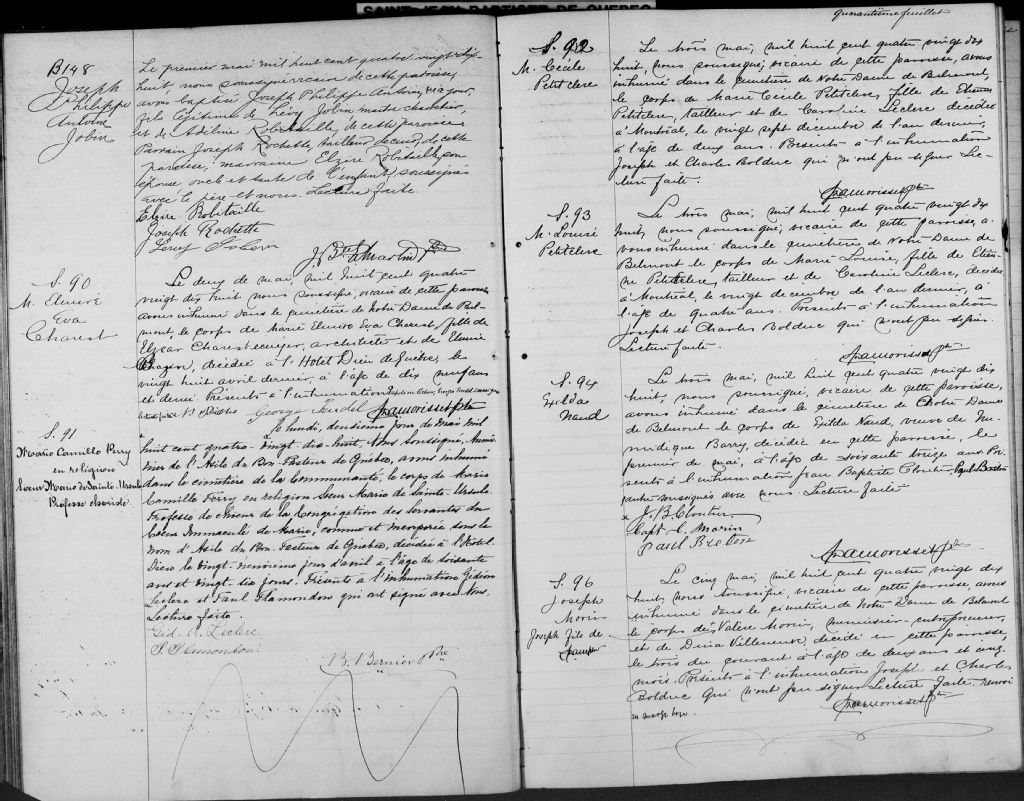 SAINT-JEAN-BAPTISTE DE QUEBEC
B148
Joseph
Philippe
Antoine
Jobin
Le premier mai mil huit cent quatre vingt dix
huit, nous soussigné vicaire de cette paroisse,
avons baptisé Joseph Philippe Antoine, né ce jour,
fils légitime de Lévy Jobin, maître charretier,
et de Adéline Robitaille, de cette paroisse.
Parrain Joseph Rochette, tailleur de cuir, de cette
paroisse; marraine Elzire Robitaille, son
épouse oncle et tante de l'enfant, soussignés
avec le père et nous. Lecture faite.
Elzire Robitaille
Joseph Rochette
Levy Jobin
J. Bte Martin Ptre
S. 90
M. Elmire
Eva
Charest
Le deux de mai, mil huit cent quatre
vingt dix huit nous soussigné, vicaire de cette paroisse
avons inhumé dans le cimetière de Notre Dame de Bel-
mont, le corps de Marie Elmire Eva Charest, fille de
Elzéar Charest écuyer, architecte et de Elmire
Chazin, décédée à l'Hotel Dieu de Quebec, le
vingt huit avril dernier, à l'âge de dix neuf ans
et demi. Présents à l'inhumation
George Trudel
F. X. A. Morisset Ptre
S. 91
Marie Camille Perry
en religion
Soeur Marie de Sainte-Ursule
Professe choriste.
Le lundi, deuxième jour de Mai mil
huit cent quatre-vingt dix-huit, Nous soussigné, Aumô-
nier de l'Asile du Bon-Pasteur de Québec, avons inhumé
dans le cimetière de la Communauté, le corps de Marie
Camille Perry en religion Soeur Marie de Sainte-Ursule
Professe de Choeur de la Congrégation des Servantes du
Coeur Immaculé de Marie, connue et incorporée sous le
nom d'Asile du Bon-Pasteur de Québec, décédée à l'Hotel-
Dieu le vingt-neuvième jour d'avril à l'âge de soixante
ans et vingt-six jours. Présents à l'inhumation Gédéon
Leclerc et Paul Plamondon qui ont signé avec Nous.
Lecture faite.
Géd. A. Leclerc
P. Plamondon
B. Bernier Ptre
quarantième feuillet
S. 92
M. Cécile
Petitclerc
Le trois mai, mil huit cent quatre vingt dix
huit, nous soussigné, vicaire de cette paroisse, avons
inhumé dans le cimetière de Notre Dame de Belmont,
le corps de Marie Cécile Petitclerc, fille de Etienne
Petitclerc, tailleur et de Caroline Leclerc décédée
à Montréal, le vingt sept decembre de l'an dernier,
à l'âge de deux ans. Présents à l'inhumation
Joseph et Charles Bolduc qui n'ont pu signer Lec-
ture faite.
F. X. A. Morisset Ptre
S. 93
M. Louise
Petitclerc
Le trois mai, mil huit cent quatre vingt dix
huit, nous soussigné, vicaire de cette paroisse, a-
vons inhumé dans le cimetière de Notre Dame de
Belmont le corps de Marie Louise, fille de Etien-
ne Petitclerc, tailleur et de Caroline Leclerc, décédée
à Montréal, le vingt decembre de l'an dernier, à
l'âge de quatre ans. Présents à l'inhumation
Joseph et Charles Bolduc qui n'ont pu signer.
Lecture faite.
F. X. A. Morisset Ptre
S. 94
Exilda
Naud
Le trois mai, mil huit cent quatre vingt dix
huit, nous soussigné, vicaire de cette paroisse,
avons inhumé dans le cimetière de Notre Dame
de Belmont le corps de Exilda Naud, veuve de
Barry, décédée en cette paroisse, le
premier de mai, à l'âge de soixante treize ans. Pré-
sents à l'inhumation Jean Baptiste Cloutier, Paul Breton
soussignés avec nous. Lecture faite
J. B. Cloutier
Capt. L. Morin
Paul Breton
F. X. A. Morisset Ptre
S. 96
Joseph
Morin
Joseph fils de
Le cinq mai, mil huit cent quatre vingt dix
huit, nous soussigné vicaire de cette paroisse, avons
inhumé dans le cimetière de Notre Dame de Belmont
le corps de Valère Morin, menuisier-entrepreneur,
et de Dina Villeneuve, décédé en cette paroisse,
le trois du courant à l'âge de deux ans et cinq
mois. Présents à l'inhumation Joseph et Charles
Bolduc qui n'ont pu signer Lecture faite. renvoi
en marge bon.
F. X. A. Morisset Ptre